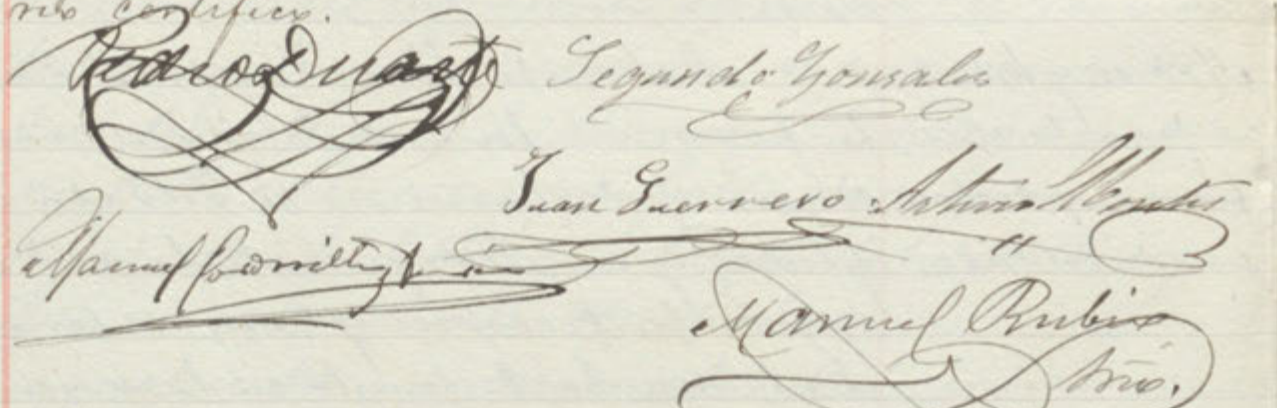 certifico.
Pedro Duarte Segundo Gonzales
Juan Guerrero Arturo Montes
Manuel
Manuel Rubio
Srio.